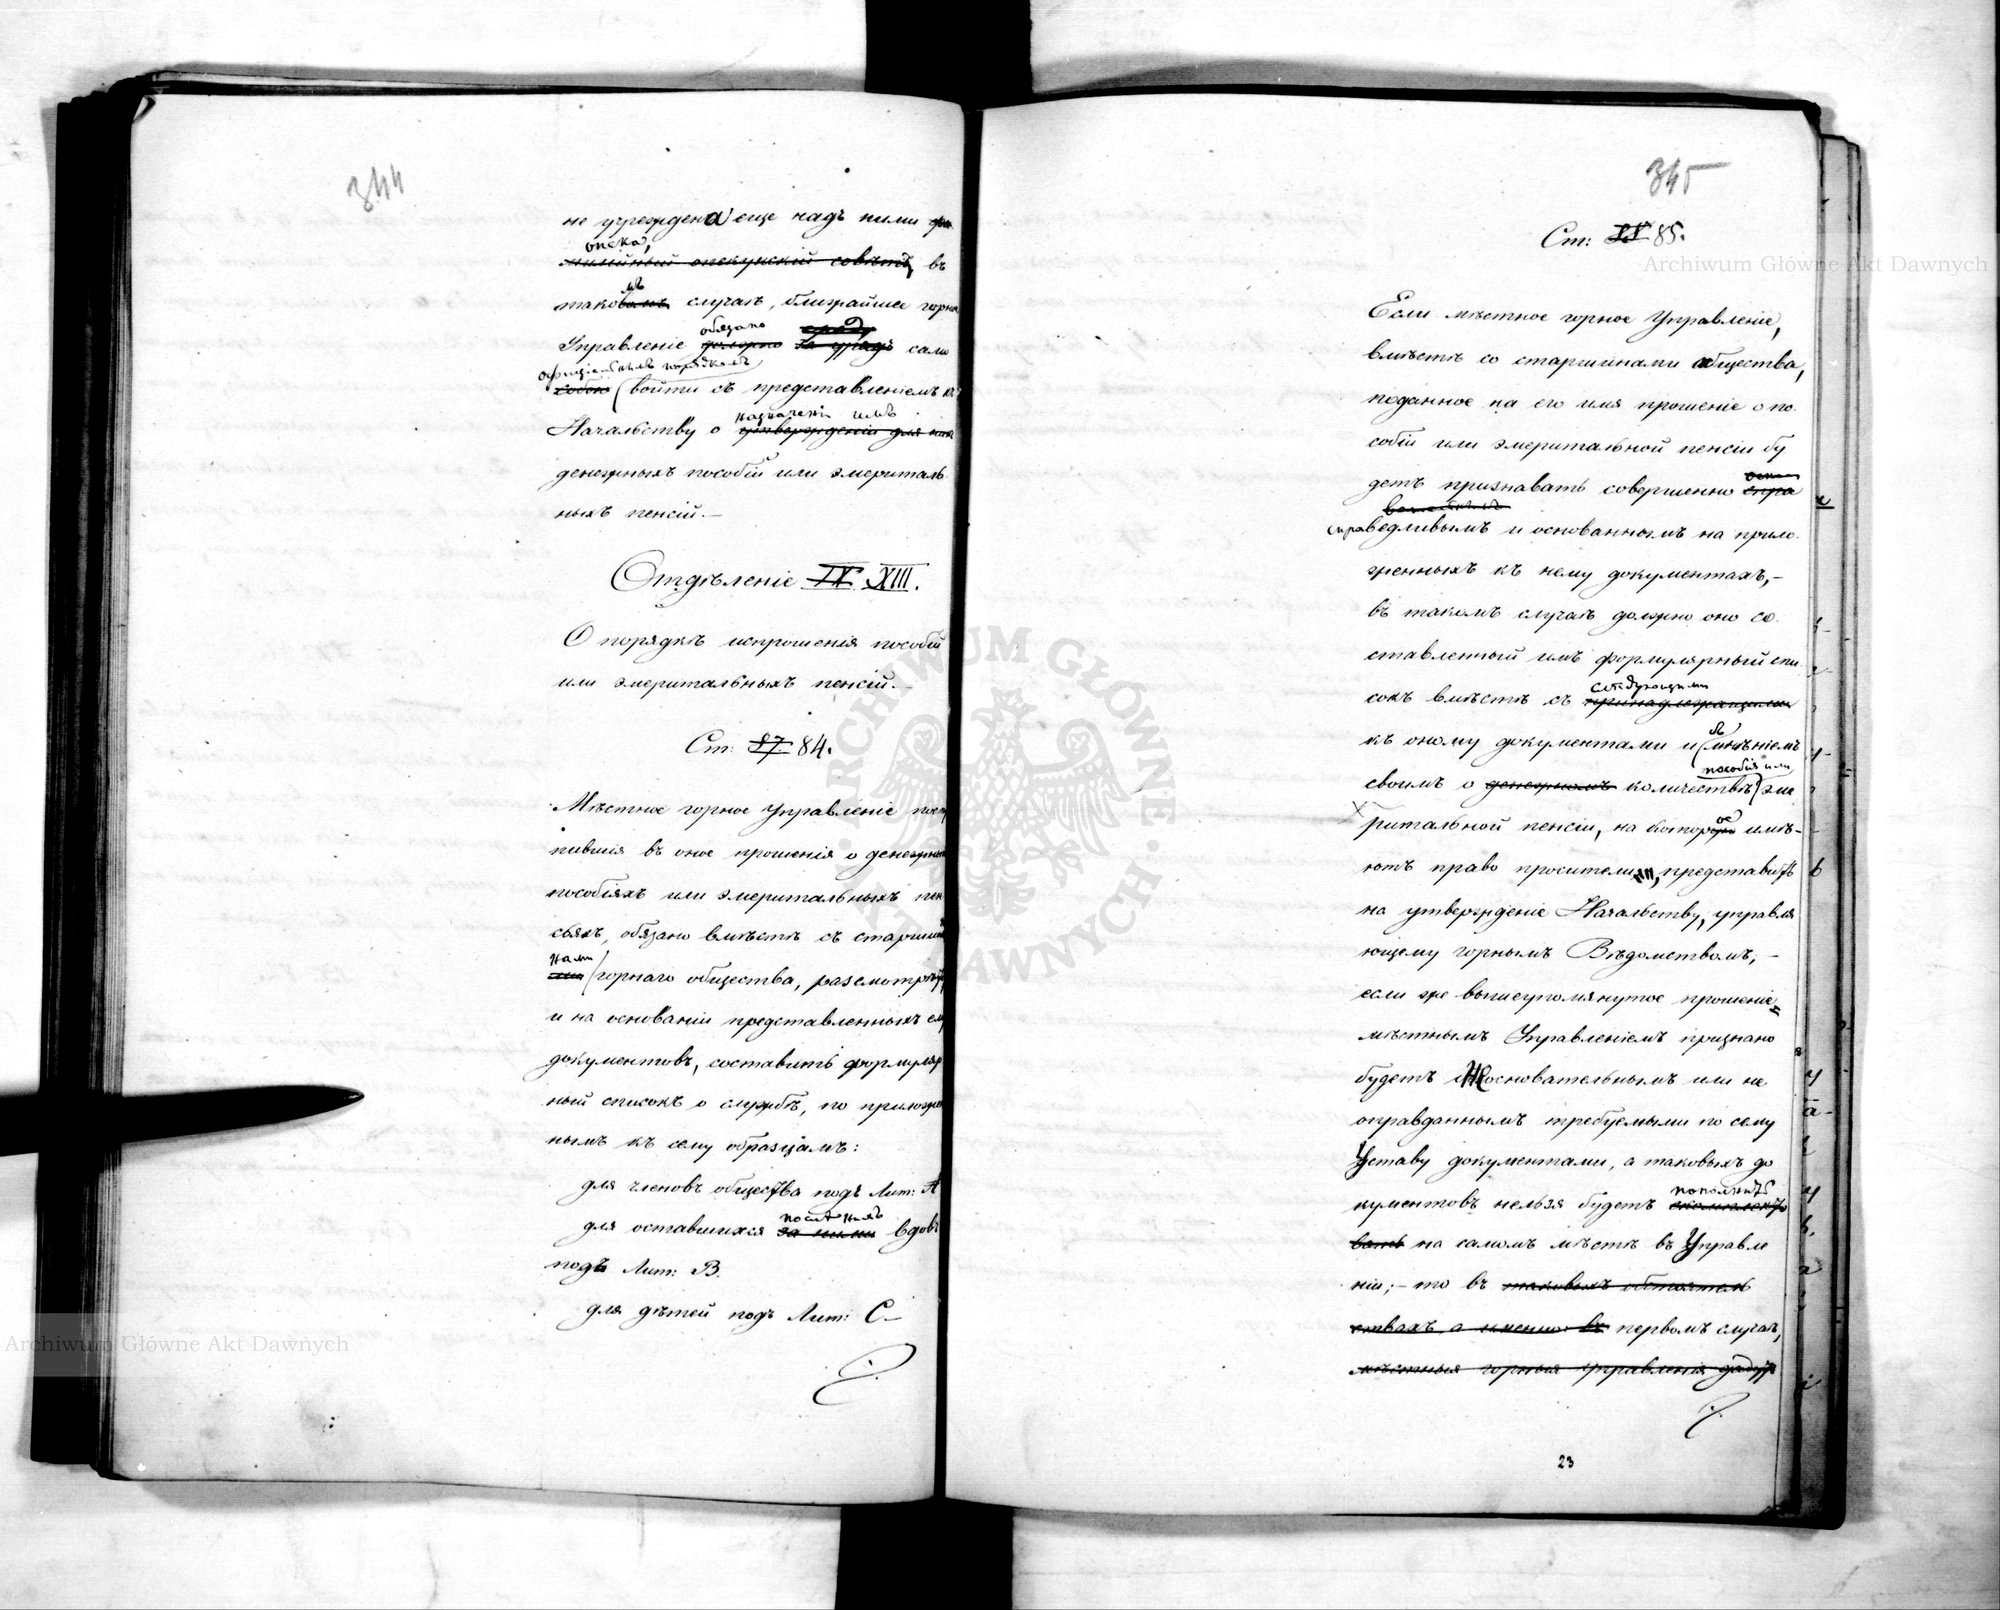 344
не учреждена еще надъ ними фа
опека,
милійный опекунскій совѣтъ, въ
мъ
таковомъ случаѣ, ближайшее горное
обязано
Управленіе должно за уряд само
офиціальнымъ порядкомъ
собою войти съ представленіемъ къ
назначеніи имъ
Начальству о утвержденіи для них
денежныхъ пособій или эмериталь
ныхъ пенсій.—
Отдѣленіе IX XIII.
О порядкѣ испрошенія пособій
или эмеритальныхъ пенсій.—
Ст: 87. 84.
Мѣстное горное Управленіе посту
пившія въ оное прошенія о денежныхъ
пособіяхъ или эмеритальныхъ пен
сіяхъ, обязано вмѣстѣ съ старшин
нами
горнаго общества, разсмотрѣть,
и на основаніи представленныхъ ему
документовъ, составить формуляр
ный списокъ о службѣ, по приложен
нымъ къ сему образцамъ:
для членовъ общества подъ Лит: А
послѣ нихъ
для оставшихся за ними вдовъ
подъ Лит: В.
для дѣтей подъ Лит: С—
345
Ст: 88 85.
Если мѣстное горное Управленіе,
вмѣстѣ со старшинами общества,
поданное на его имя прошеніе о по
собіи или эмеритальной пенсіи бу
детъ признавать совершенно спра
справедливымъ и основаннымъ на прило
женныхъ къ нему документахъ,—
въ такомъ случаѣ должно оно со
ставленный имъ формулярный спи
слѣдующими
сокъ вмѣстѣ съ принадлежащими
къ оному документами и съ мнѣніемъ
пособія или
своимъ о денежномъ количествѣ эме
ритальной пенсіи, на которое имѣ-
ютъ право просители, представить
на утвержденіе Начальству, управля
ющему горнымъ Вѣдомствомъ;—
если же вышеупомянутое прошеніе
мѣстнымъ Управленіемъ признано
будетъ неосновательнымъ или не
оправданнымъ требуемыми по сему
Уставу документами, а таковыхъ до
пополнить
кументовъ нельзя будетъ скомплекто
вать на самомъ мѣстѣ въ Управле
ніи;— то въ таковыхъ обстоятель
ствахъ, а именно: въ первомъ случаѣ,
мѣстныя горныя Управленія дадутъ
23
Archiwum Główne Akt Dawnych
Archiwum Główne Akt Dawnych
ARCHIWUM GŁÓWNE AKT DAWNYCH